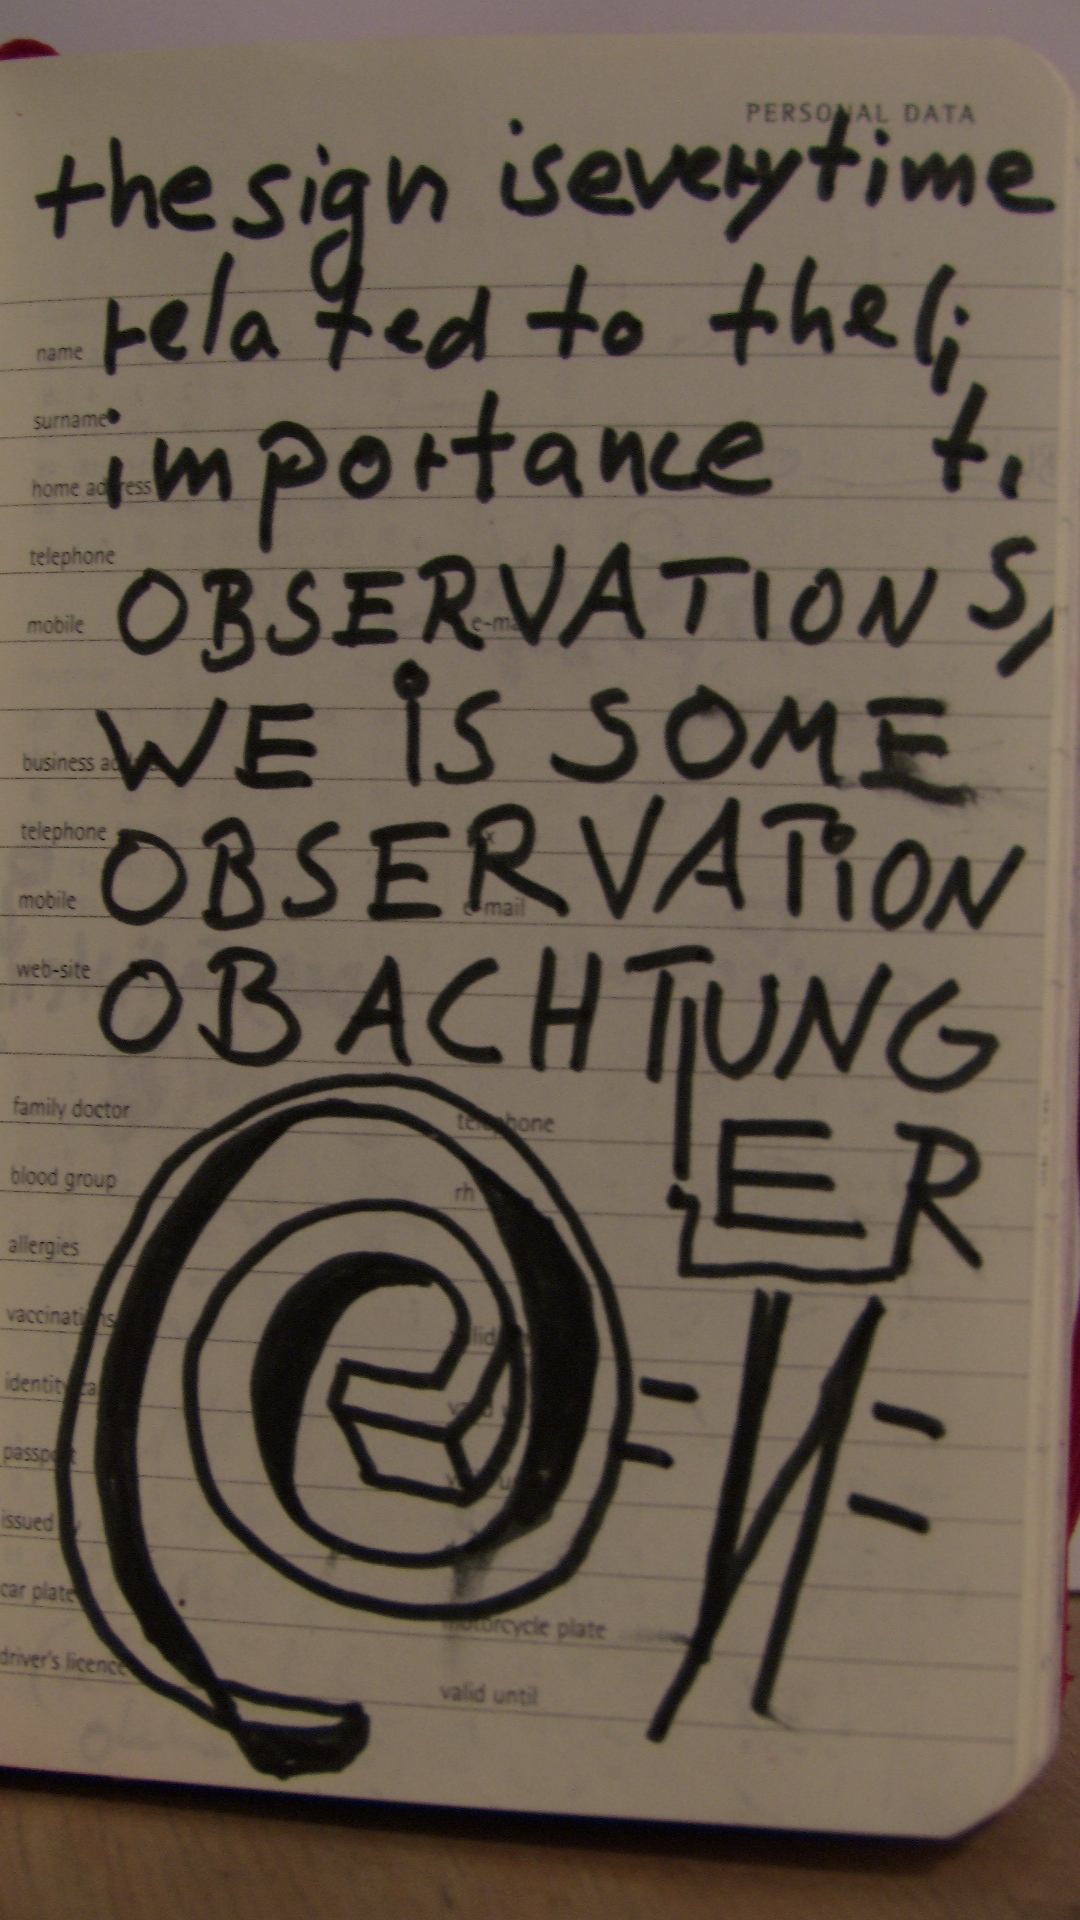 PERSONAL DATA
the sign is everytime
related to the
name
importance
surname
home address
telephone
OBSERVATIONS,
mobile e-mail
WE iS SOME
business address
OBSERVATiON
telephone fax
mobile e-mail
OBACHTUNG
web-site
ER
family doctor telephone
blood group rh
allergies
vaccinations
identity
passport
issued by
car plate motorcycle plate
driver's licence valid until